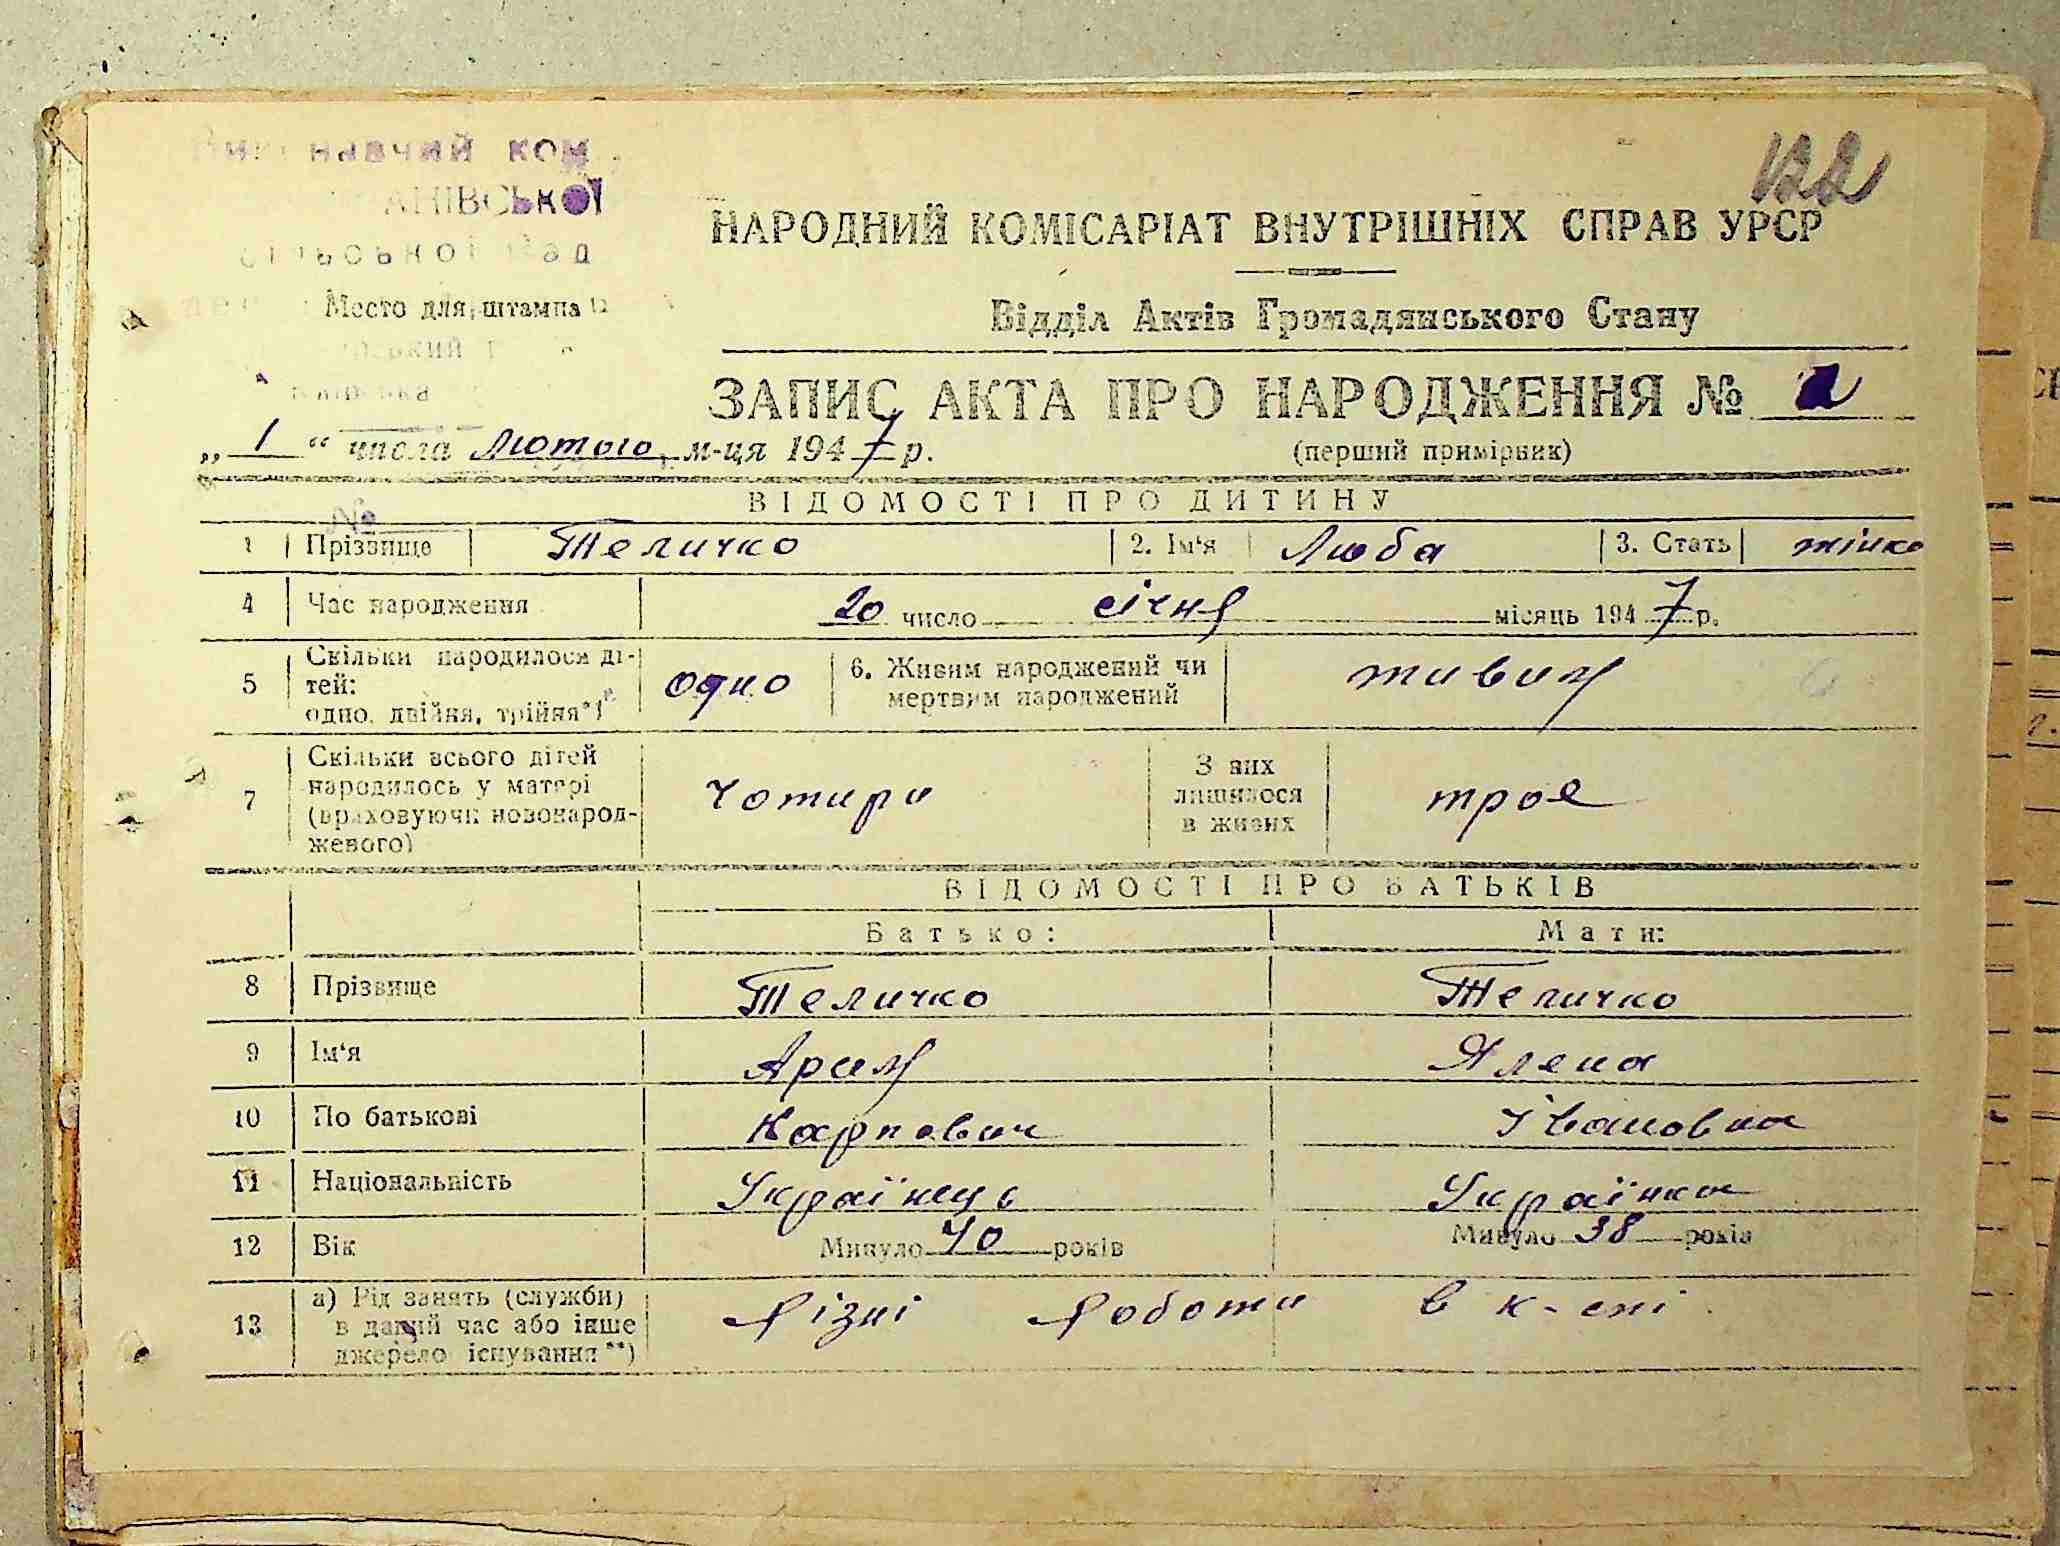 122
навчий ком
АНІВСЬКОЇ
НАРОДНИЙ КОМІСАРІАТ ВНУТРІШНІХ СПРАВ УРСР
Место для штампа
Відділ Актів Громадянського Стану
ЗАПИС АКТА ПРО НАРОДЖЕННЯ № 2
„ 1 “ числа Лютого м-ця 1947 р.
(перший примірник)
ВІДОМОСТІ ПРО ДИТИНУ
№
1 Прізвище Теличко 2. Ім'я Люба 3. Стать жіно
4 Час народження 20 число січня місяць 1947 р.
5 Скільки народилося ді-
тей:
одно, двійня, трійня*) одно 6. Живим народжений чи
мертвим народжений живим
7 Скільки всього дітей
народилось у матері
(враховуючи новонарод-
жевого) чотири З них
лишилося
в живих троє
ВІДОМОСТІ ПРО БАТЬКІВ
Батько: Мати:
8 Прізвище Теличко Теличко
9 Ім'я Арим Ялена
10 По батькові Карпович Івановна
11 Національність Українець Українка
12 Вік Минуло 40 років Минуло 38 років
13 а) Рід занять (служби)
в даний час або інше
джерело існування**) Різні роботи в к-спі